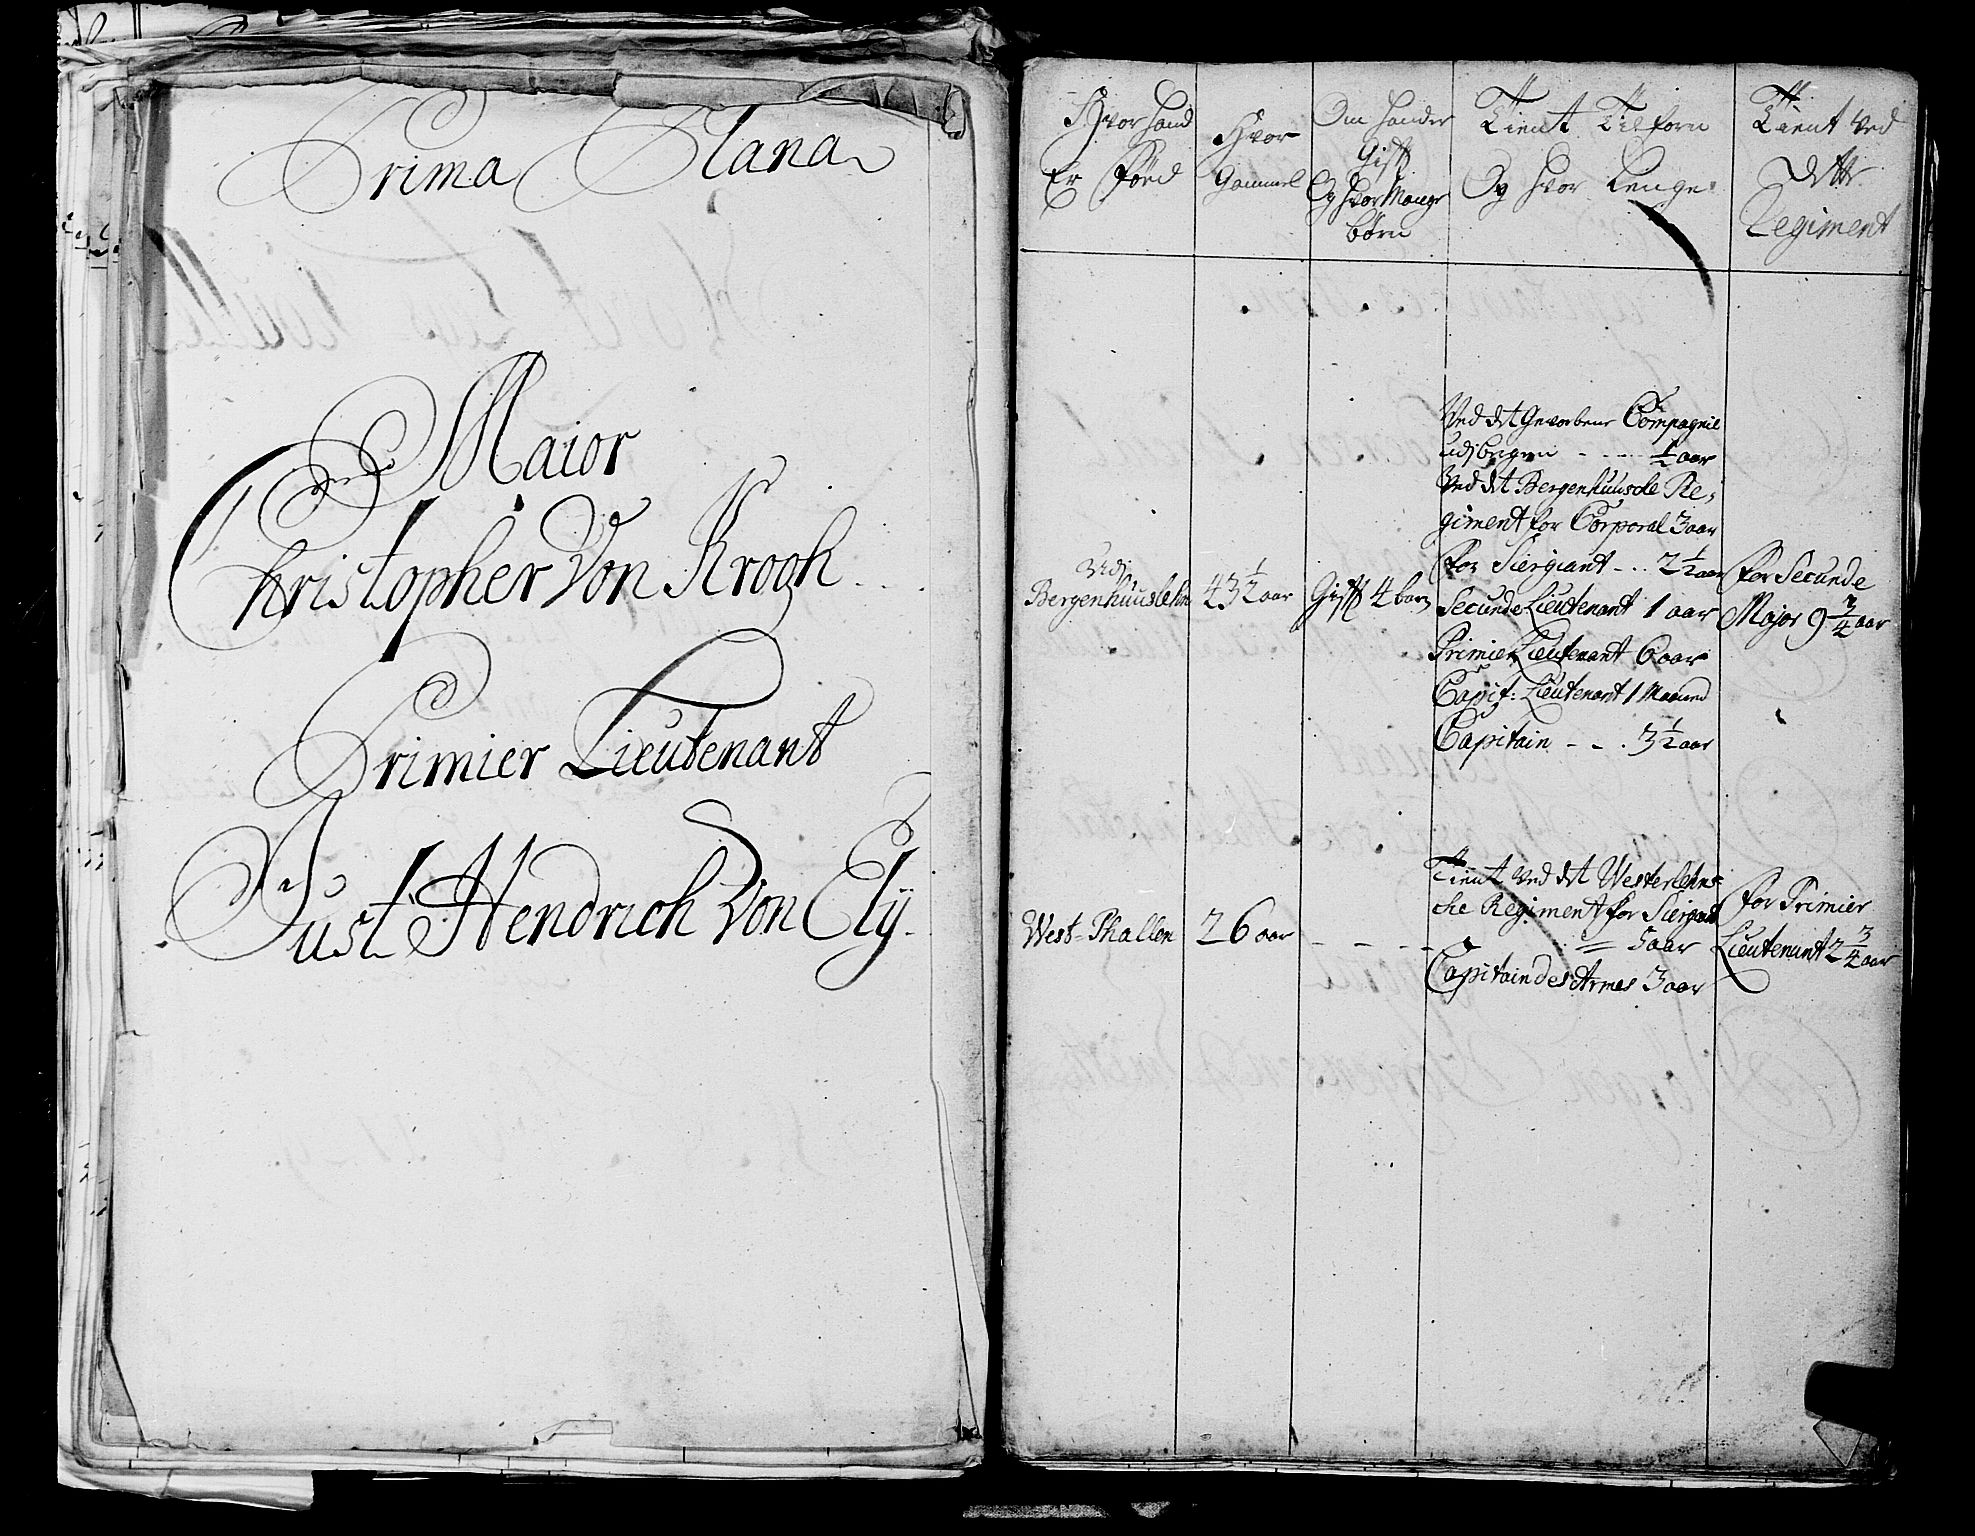 Prima Plana
Maior
Christopher Von Krogh
Primier Lieutenant
Just Hendrich Von Elÿ
Hvor hand
Er Föed
Hvor
Gammel
Om hand er
Gift
Og hvor Mange
børn
Tient Tilforn
Og hvor Lenge
Tient ved
dette
Regiment
Udj
Bergenhuuslehn
43 1/2 aar
Gift 4 børn
Ved det Gevorbene Compagnie
udj Bergen - - - 1/2 aar
Ved det Bergenhuusche Re-
giment for Corporal 3 aar
for Siergiant - - 2 1/2 aar
Secunde Lieutenant 1 aar
Primier Lieutenant 6 aar
Capit: Lieutenant 1 Maaned
Capitain - - 3 1/2 aar
for Secunde
Major 9 3/4 aar
West-Phallen
26 aar
- - - -
Tient ved det Westerlehns-
che Regiment for Siergiant
= 5 aar
Capitain des Armes 3 aar
for Primier
Lieutenant 2 3/4 aar